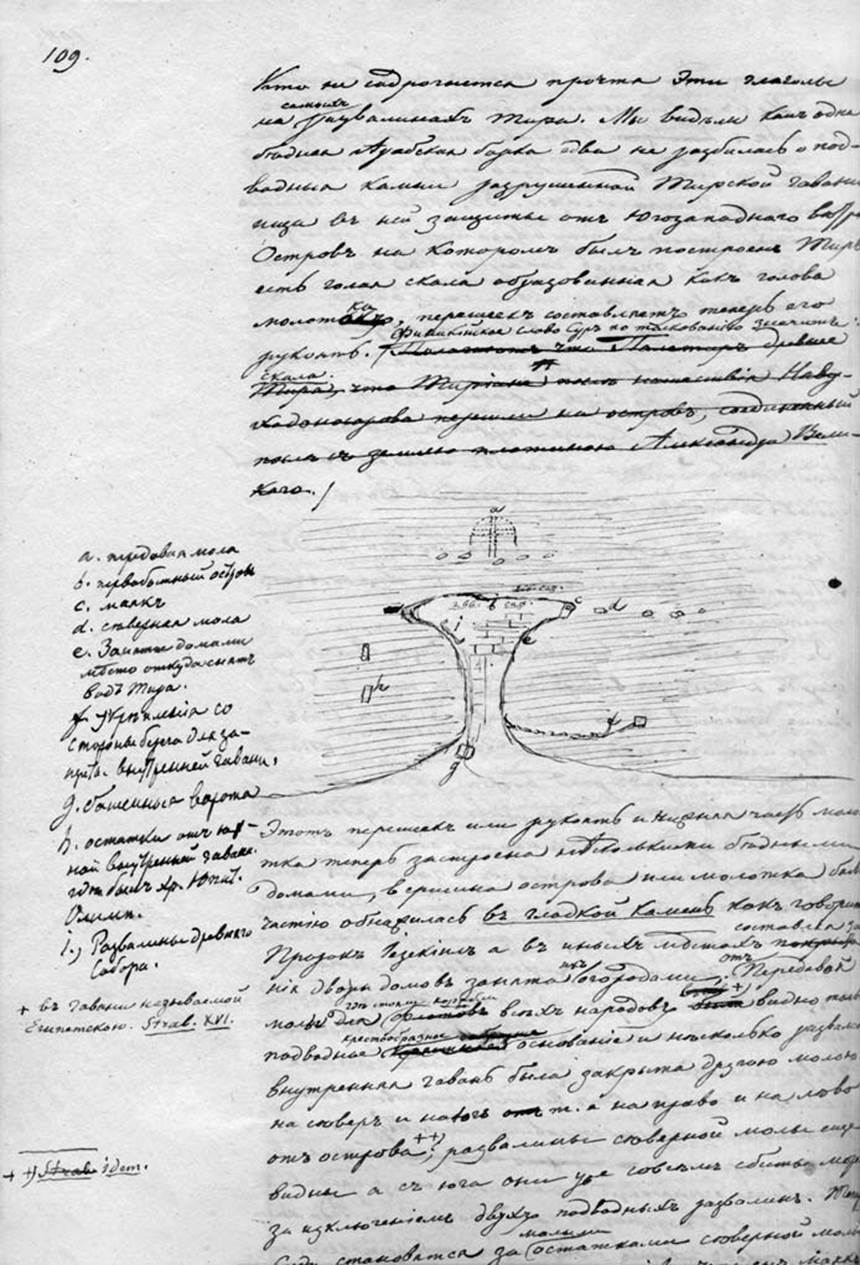 109.
Кто не содрогнется прочтя Эти глаголы
самыхъ
на развалинахъ Тира. Мы видѣли какъ одна
бѣдная Арабская барка едва не разбилась о под-
водныя камни разрушенной Тирской гавани
ища въ ней защиты отъ Югозападнаго вѣтра
Островъ на которомъ былъ построенъ Тиръ
есть голая скала образованная какъ голова
ка
молот перешеекъ составляетъ теперь его
Финикійское слово Суръ по толкованію значитъ
рукоять. Полагаютъ что Палетиръ древнѣе
скала.
Тира, что Тиріане послѣ нашествія Наву-
ходоносорова перешли на островъ, соединенный
послѣ съ землею плотиною Александра Вели-
каго.
a
c
d
e
i
f
h
g
a. передовая мола
b. первобытный островъ
c. маякъ
d. сѣверная мола
e. Занятое домами
мѣсто откуда снятъ
видъ Тира.
f. Укрѣпленія со
стороны берега для за-
внутренней гавани.
g. башенныя ворота
h. остатки отъ юж-
ной внутренней гавани.
гдѣ былъ хр. Юпит.
Олимп.
i.) Развалины древняго
Собора.
+ въ гавани называемой
Египетскою. Strab. XVI.
++) Strab idem.
Этотъ перешеекъ или рукоять и нижняя часть моло
тка теперь застроена нѣсколькими бѣдными
домами, вершина острова или молотка боль
частію обнажилась въ гладкой камень какъ говоритъ
составляя
Пророкъ Іезекіиль а въ иныхъ мѣстахъ
нія дворы домовъ занята огородами. отъ Передовой
гдѣ стояли корабли
молы для флотовъ всѣхъ народовъ +) видно
крестообразное
подводное основаніе и нѣсколько развалинъ
внутренняя гавань была закрыта другою молою
на сѣверъ и на югъ т. е на право и на лѣво
отъ острова ++) развалины сѣверной молы еще
видны а съ юга они уже совсѣмъ сбиты моремъ
за исключеніемъ двухъ подводныхъ развалинъ.
малыми
Суда становятся за остатками сѣверной молы